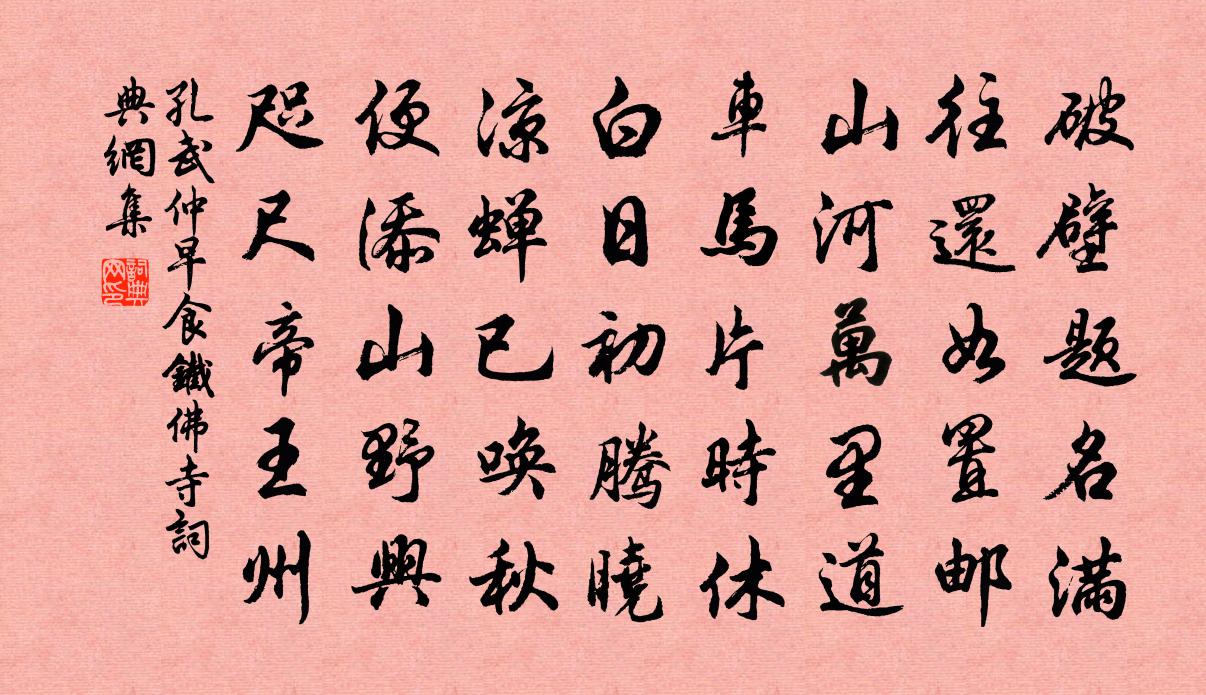 破壁題名滿
往還如置邮
山河萬里道
車馬片時休
白日初騰曉
涼蝉已喚秋
便添山野興
咫尺帝王州
孔武仲早食鐵佛寺詞
典網集
詞典
网印